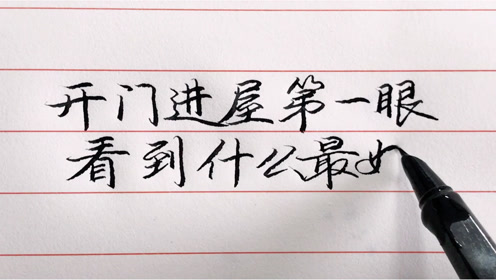 开门进屋第一眼
看到什么最